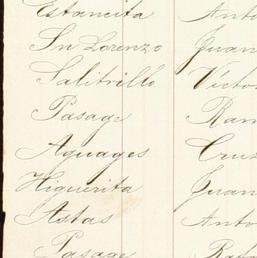 Estancita Anto
Sn Lorenzo Juan
Salitrillo Victo
Pasage Ram
Aguages Cruz
Higuerita Juan
Astas Anto
Pasage Rafa